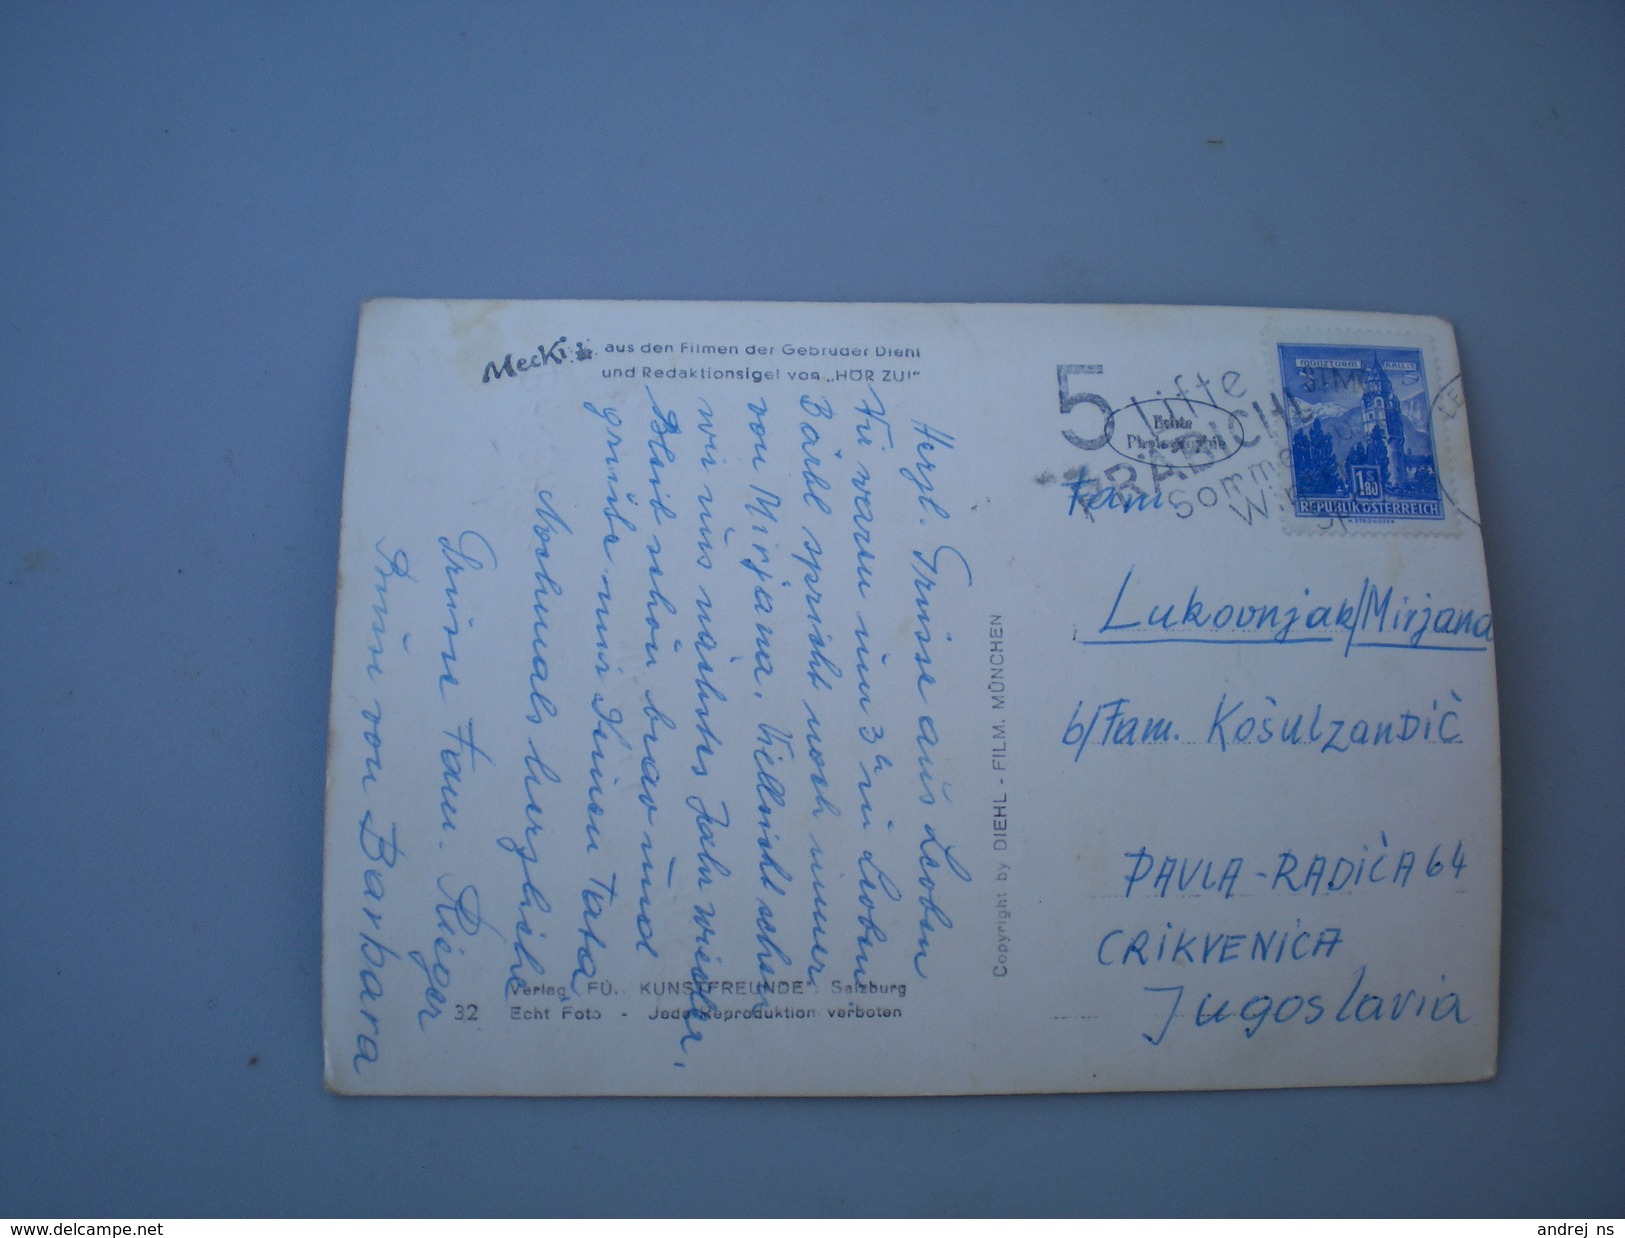 Mecki: aus den Filmen der Gebrüder Diehl
und Redaktionsigel von „HÖR ZU!"
Herzl. Grüsse aus Leoben
Wir waren um 3h in Leoben
Bärbl spricht noch immer
von Mirjana. Vielleicht sehen
wir uns nächstes Jahr wieder,
Bleib schön brav und
grüße mir Deinen Tata
Nochmals herzliche
Grüsse Fam. Rieger
von Barbara
Verlag FÜ. KUNSTFREUNDE" Salzburg
32 Echt Foto - Jede Reproduktion verboten
Copyright by DIEHL - FILM. MÜNCHEN
5 Lifte
PRÄBICHL
Echte
Photographie
MÜNZTURM HALL i.T.
1.80 S
REPUBLIK ÖSTERREICH
Fam.
Lukovnjak/Mirjana
b/Fam. KošulzanDić
PAVLA-RADIĆA 64
CRIKVENICA
Jugoslavia
andrej ns
www.delcampe.net